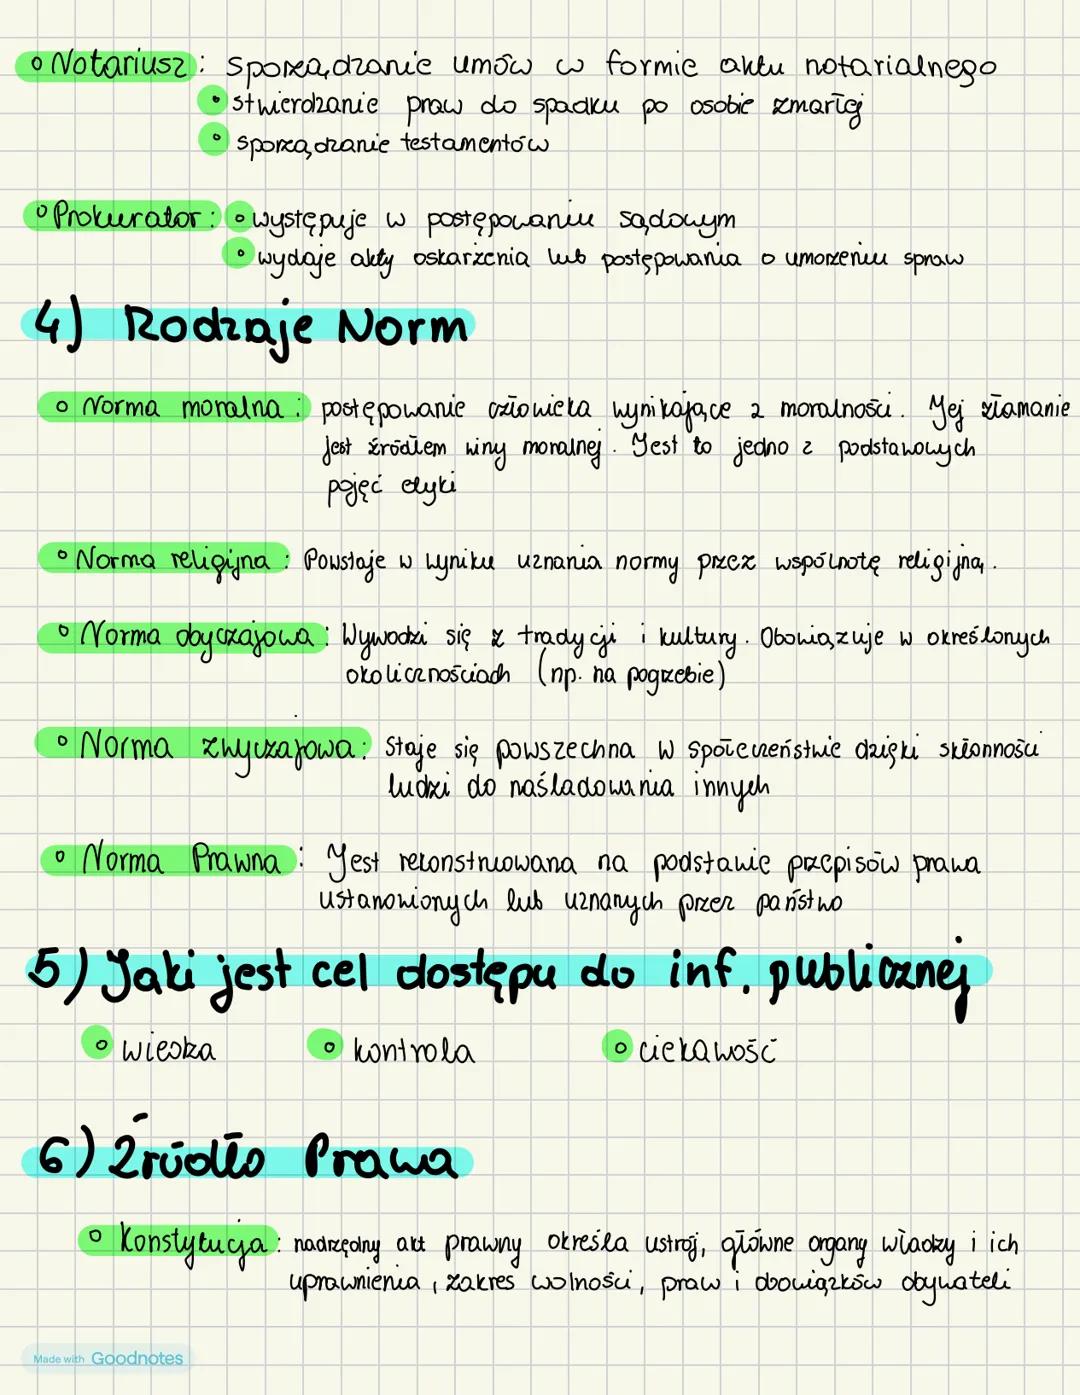 Notariusz: sporządzanie umów w formie aktu notarialnego
stwierdzanie praw do spadku po osobie zmarłej
sporządzanie testamentów
Prokurator: występuje w postępowaniu sądowym
wydaje akty oskarżenia lub postępowania o umorzeniu spraw
4) Rodzaje Norm
Norma moralna: postępowanie człowieka wynikające z moralności. Jej złamanie
jest źródłem winy moralnej. Jest to jedno z podstawowych
pojęć etyki
Norma religijna: Powstaje w wyniku uznania normy przez wspólnotę religijną.
Norma obyczajowa: Wywodzi się z tradycji i kultury. Obowiązuje w określonych
okolicznościach (np. na pogrzebie)
Norma zwyczajowa: Staje się powszechna w społeczeństwie dzięki skłonności
ludzi do naśladowania innych
Norma Prawna: Jest rekonstruowana na podstawie przepisów prawa
ustanowionych lub uznanych przez państwo
5) Jaki jest cel dostępu do inf. publicznej
wiedza kontrola ciekawość
6) Źródło Prawa
Konstytucja: nadrzędny akt prawny określa ustrój, główne organy władzy i ich
uprawnienia, zakres wolności, praw i obowiązków obywateli
Made with Goodnotes